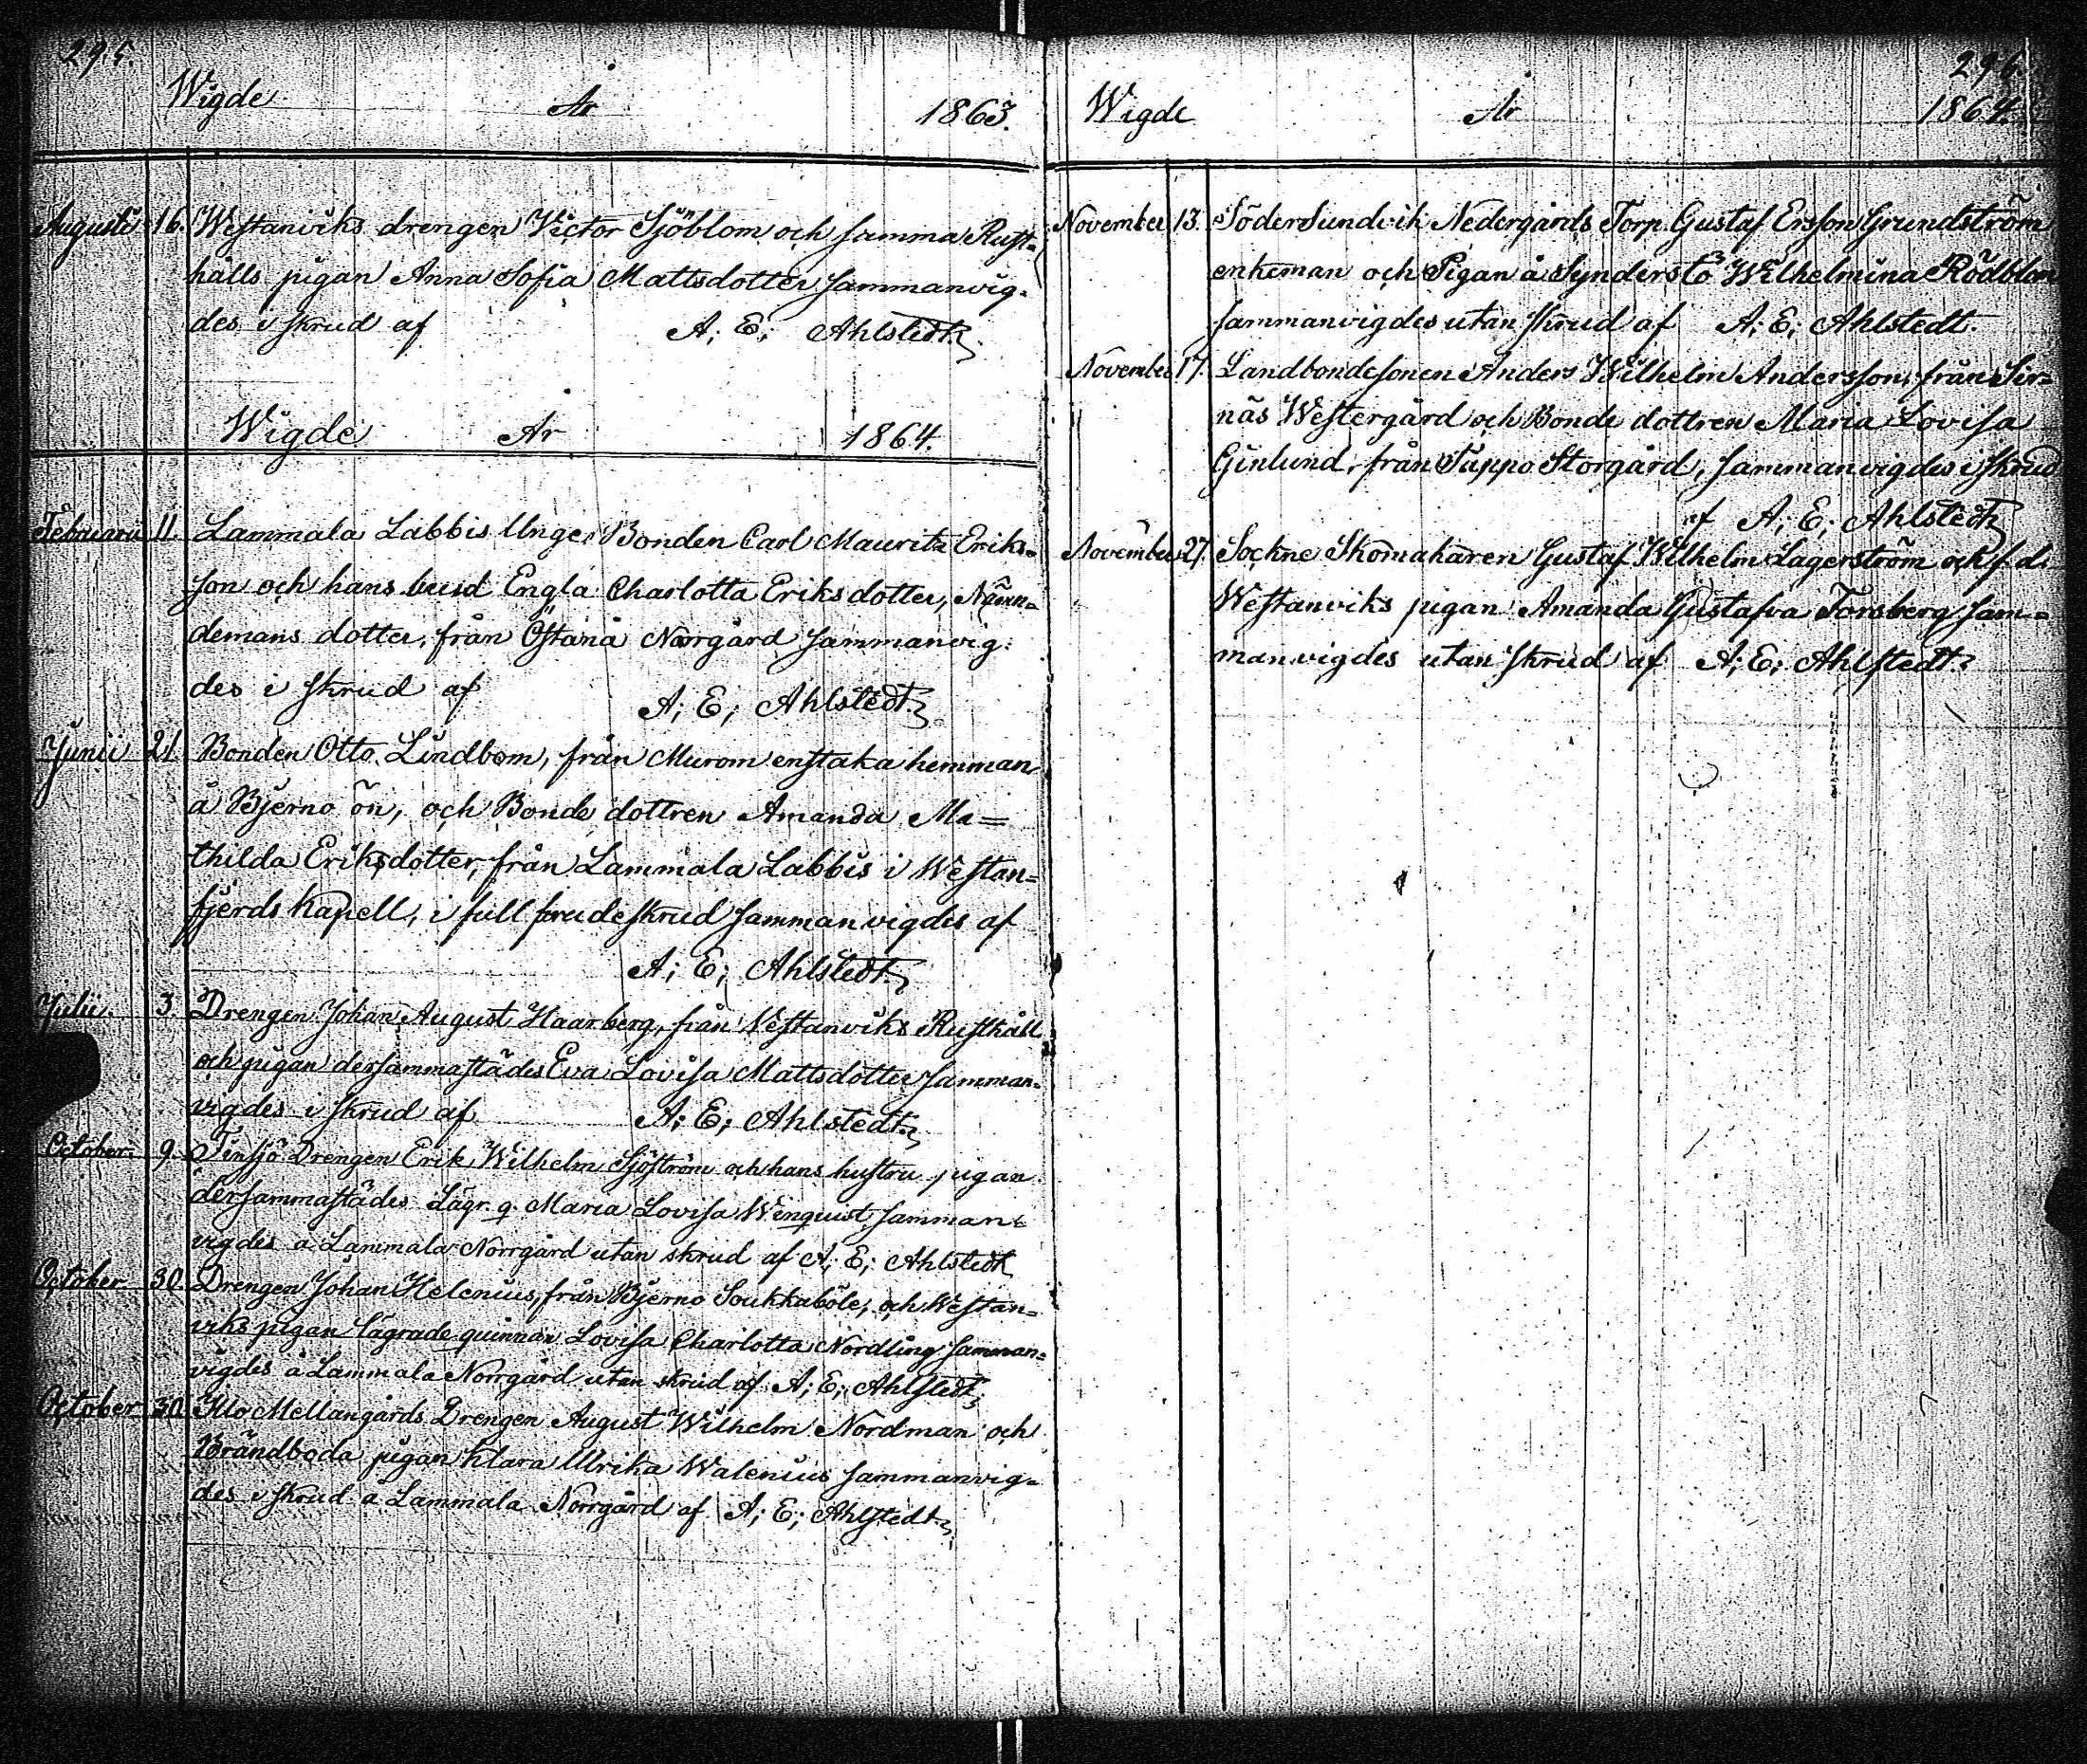 295.
Wigde År 1863.
Augusti 16. Westanviks drengen Victor Sjöblom och samma Rust-
hålls pigan Anna Sofia Mattsdotter sammanvig-
des i skrud af A; E; Ahlstedt
Wigde År 1864.
Februarii 11. Lammala Labbis Unge Bonden Carl Mauritz Eriks-
son och hans brud Engla Charlotta Eriksdotter, Nämn-
demans dotter, från Östanå Norrgård sammanvig-
des i skrud af A; E; Ahlstedt
Junii 21. Bonden Otto Lindbom, från Murom enstaka hemman
å Bjerno ön, och Bonde dottren Amanda Ma=
thilda Eriksdotter, från Lammala Labbis i Westan-
fjerds Kapell, i full brudeskrud sammanvigdes af
A; E; Ahlstedt
Julii. 3. Drengen Johan August Haarberg, från Westanviks Rusthåll
och pigan dersammastädes Eva Lovisa Mattsdotter samman-
vigdes i skrud af A; E; Ahlstedt
October 9. Tensjö Drengen Erik Wilhelm Sjöström och hans hustru pigan
dersammastädes Lägr. q. Maria Lovisa Wenquist, samman-
vigdes å Lammala Norrgård utan skrud af A; E; Ahlstedt
October 30. Drengen Johan Helenius, från Bjerno Soukkaböle, och Westan-
viks pigan lägrade quinnan Lovisa Charlotta Nordling samman-
vigdes å Lammala Norrgård utan skrud af A; E; Ahlstedt
October 30. Illo Mellangårds Drengen August Wilhelm Nordman och
Brändboda pigan Klara Ulrika Walenius sammanvig-
des i skrud å Lammala Norrgård af A; E; Ahlstedt
296.
Wigde År 1864.
November 13. Södersundvik Nedergårds Torp. Gustaf Ersson Grundström
enkeman och Pigan å Synderstö Wilhelmina Rödblom
sammanvigdes utan skrud af A; E; Ahlstedt.
November 17. Landbondesonen Anders Wilhelm Andersson, från Sir-
näs Westergård och Bonde dottren Maria Lovisa
Ginlund, från Tappo Storgård, sammanvigdes i skrud
af A; E; Ahlstedt
November 27. Sockne Skomakaren Gustaf Wilhelm Lagerström och f. d.
Westanviks pigan Amanda Gustafva Forsberg sam-
manvigdes utan skrud af A; E; Ahlstedt